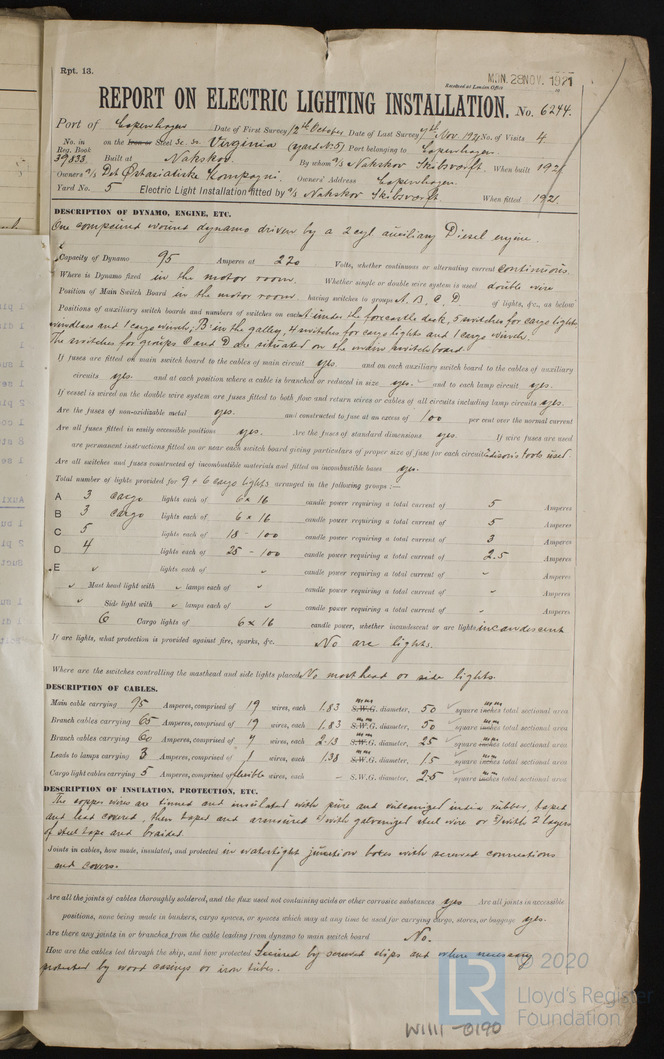 Rpt. 13.
MON. 28 NOV. 1921
Received at London Office
REPORT ON ELECTRIC LIGHTING INSTALLATION. No. 6244.
Port of Copenhagen Date of First Survey 12th October Date of Last Survey 7th Nov 1921 No. of Visits 4
No. in Reg. Book 39833. on the Iron or Steel Sc. Sr. Virginia (yard No 5) Port belonging to Copenhagen.
Built at Nakskov. By whom A/S Nakskov Skibsværft. When built 1921
Owners A/S Det Østasiatiske Kompagni. Owners' Address Copenhagen.
Yard No. 5 Electric Light Installation fitted by A/S Nakskov Skibsværft. When fitted 1921.
DESCRIPTION OF DYNAMO, ENGINE, ETC.
One compound wound dynamo driven by a 2 cyl auxiliary Diesel engine.
Capacity of Dynamo 95 Amperes at 220 Volts, whether continuous or alternating current continuous.
Where is Dynamo fixed in the motor room. Whether single or double wire system is used double wire
Position of Main Switch Board in the motor room. having switches to groups A. B. C. D of lights, &c., as below
Positions of auxiliary switch boards and numbers of switches on each A under the forecastle deck, 5 switches for cargo lights,
windlass and 1 cargo winch; B in the galley, 4 switches for cargo lights and 1 cargo winch.
The switches for groups C and D are situated on the main switchboard.
If fuses are fitted on main switch board to the cables of main circuit yes. and on each auxiliary switch board to the cables of auxiliary
circuits yes. and at each position where a cable is branched or reduced in size yes. and to each lamp circuit yes.
If vessel is wired on the double wire system are fuses fitted to both flow and return wires or cables of all circuits including lamp circuits yes.
Are the fuses of non-oxidizable metal yes. and constructed to fuse at an excess of 100 per cent over the normal current
Are all fuses fitted in easily accessible positions yes. Are the fuses of standard dimensions yes. If wire fuses are used
are permanent instructions fitted on or near each switch board giving particulars of proper size of fuse for each circuit used.
Are all switches and fuses constructed of incombustible materials and fitted on incombustible bases yes.
Total number of lights provided for 9 + 6 cargo lights arranged in the following groups :—
A 3 cargo lights each of 6 x 16 candle power requiring a total current of 5 Amperes
B 3 cargo lights each of 6 x 16 candle power requiring a total current of 5 Amperes
C 5 lights each of 18 - 100 candle power requiring a total current of 3 Amperes
D 4 lights each of 25 - 100 candle power requiring a total current of 2.5 Amperes
E " lights each of " candle power requiring a total current of " Amperes
" Mast head light with " lamps each of " candle power requiring a total current of " Amperes
" Side light with " lamps each of " candle power requiring a total current of " Amperes
6 Cargo lights of 6 x 16 candle power, whether incandescent or arc lights incandescent
If arc lights, what protection is provided against fire, sparks, &c. No arc lights.
Where are the switches controlling the masthead and side lights placed No masthead or side lights.
DESCRIPTION OF CABLES.
Main cable carrying 95 Amperes, comprised of 19 wires, each 1.83 mm S.W.G. diameter, 50 square mm inches total sectional area
Branch cables carrying 65 Amperes, comprised of 19 wires, each 1.83 mm S.W.G. diameter, 50 square mm inches total sectional area
Branch cables carrying 60 Amperes, comprised of 7 wires, each 2.13 mm S.W.G. diameter, 25 square mm inches total sectional area
Leads to lamps carrying 3 Amperes, comprised of 1 wires, each 1.38 mm S.W.G. diameter, 1.5 square mm inches total sectional area
Cargo light cables carrying 5 Amperes, comprised of flexible wires, each – S.W.G. diameter, 2.5 square mm inches total sectional area
DESCRIPTION OF INSULATION, PROTECTION, ETC.
The copper wire are tinned and insulated with pure and vulcanized india rubber, taped
and lead covered, then taped and armoured with galvanized steel wire or with 2 layers
of steel tape and braided.
Joints in cables, how made, insulated, and protected in watertight junction boxes with screwed connections
and covers.
Are all the joints of cables thoroughly soldered, and the flux used not containing acids or other corrosive substances yes Are all joints in accessible
positions, none being made in bunkers, cargo spaces, or spaces which may at any time be used for carrying cargo, stores, or baggage yes.
Are there any joints in or branches from the cable leading from dynamo to main switch board No.
How are the cables led through the ship, and how protected Secured by screwed clips and where necessary
protected by wood casings or iron tubes.
© 2020
LR Lloyd's Register
Foundation
W1111-0190